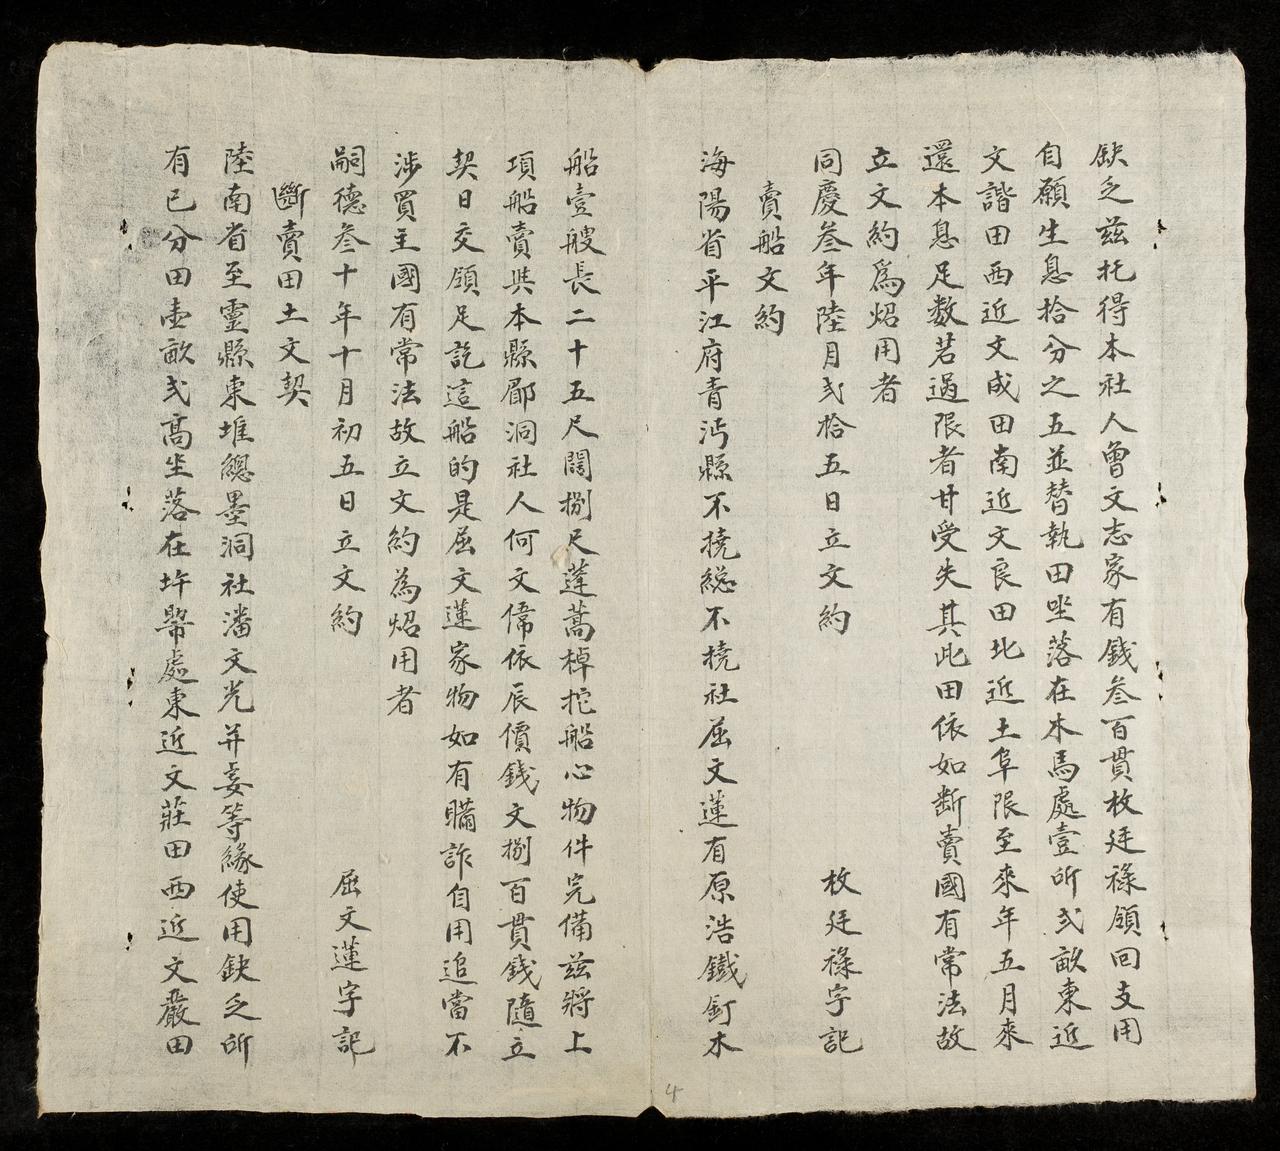 缺乏茲托得本社人曾文志家有錢叁百貫枚廷祿領回支用
自願生息拾分之五並替執田坐落在木馬處壹所弍畝東近
文諧田西近文成田南近文良田北近土阜限至來年五月來
還本息足数若過限者甘受失其此田依如断賣國有常法故
立文約爲炤用者
同慶叁年陸月弍拾五日立文約
枚廷祿字記
賣船文約
海陽省平江府青沔縣不撓總不撓社屈文蓮有原浩鐵釘木
船壹艘長二十五尺闊捌尺蓬蒿棹柁船心物件完備茲將上
項船賣與本縣鄏洞社人何文僃依辰價錢文捌百貫錢隨立
契日交領足訖這船的是屈文蓮家物如有瞞詐自用追當不
涉買主國有常法故立文約為炤用者
嗣德叁十年十月初五日立文約
屈文蓮字記
斷賣田土文契
陸南省至靈縣東堆總墨洞社潘文光并妾等緣使用缺乏所
有已分田壹畝弍高坐落在圤幣處東近文莊田西近文嚴田
4